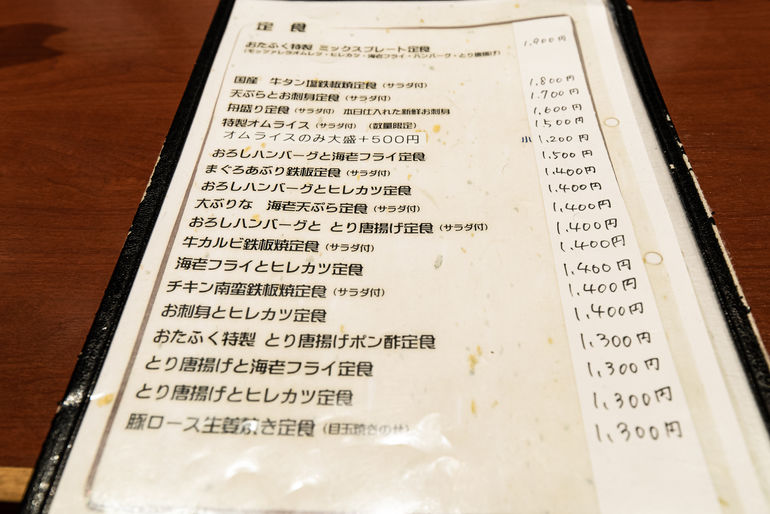 定食
おたふく特製 ミックスプレート定食 1,900円
(モッツァレラオムレツ・ヒレカツ・海老フライ・ハンバーグ・とり唐揚げ)
国産 牛タン塩鉄板焼定食(サラダ付) 1,800円
天ぷらとお刺身定食(サラダ付) 1,700円
舟盛り定食(サラダ付) 本日仕入れた新鮮お刺身 1,600円
特製オムライス(サラダ付) (数量限定) 1,500円
オムライスのみ大盛+500円 小 1,200円
おろしハンバーグと海老フライ定食 1,500円
まぐろあぶり鉄板定食(サラダ付) 1,400円
おろしハンバーグとヒレカツ定食 1,400円
大ぶりな 海老天ぷら定食(サラダ付) 1,400円
おろしハンバーグと とり唐揚げ定食(サラダ付) 1,400円
牛カルビ鉄板焼定食(サラダ付) 1,400円
海老フライとヒレカツ定食 1,400円
チキン南蛮鉄板焼定食(サラダ付) 1,400円
お刺身とヒレカツ定食 1,400円
おたふく特製 とり唐揚げポン酢定食 1,300円
とり唐揚げと海老フライ定食 1,300円
とり唐揚げとヒレカツ定食 1,300円
豚ロース生姜焼き定食(目玉焼きのせ) 1,300円